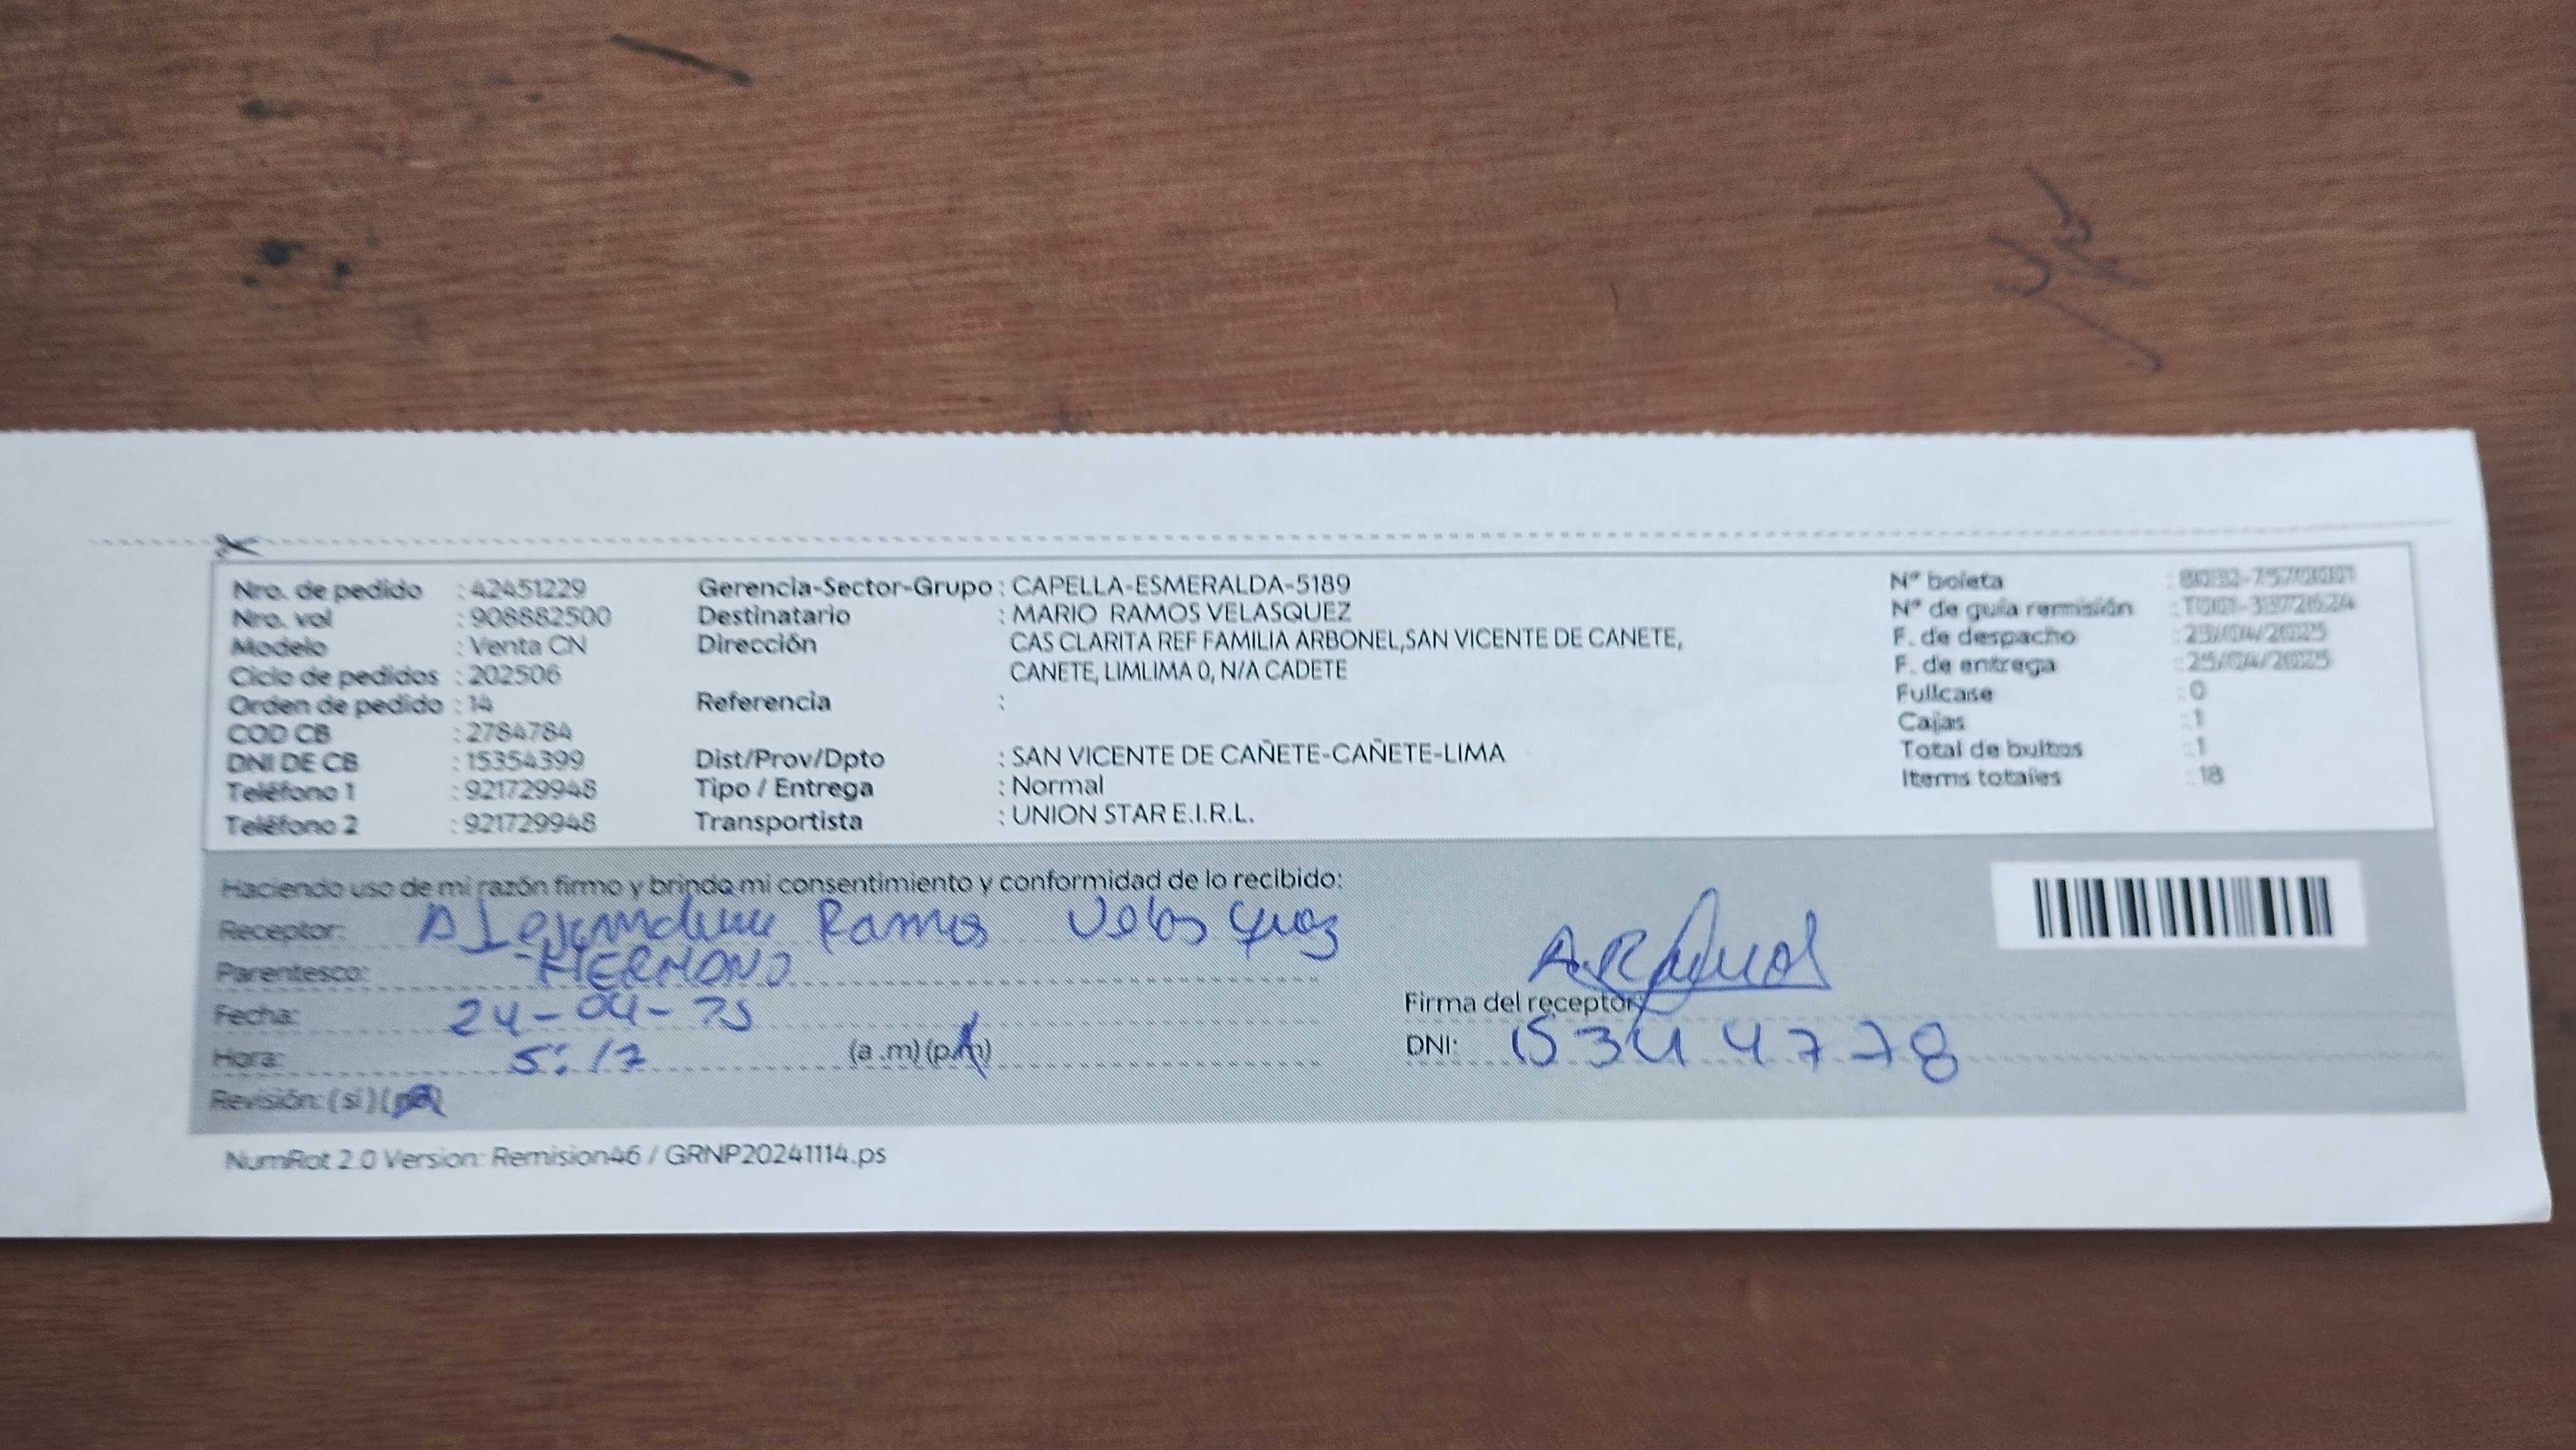 Nro. de pedido : 42451229 Gerencia-Sector-Grupo : CAPELLA-ESMERALDA-5189 N° boleta
Nro. vol : 908882500 Destinatario : MARIO RAMOS VELASQUEZ N° de guía remisión
Modelo : Venta CN Dirección CAS CLARITA REF FAMILIA ARBONEL,SAN VICENTE DE CANETE, F. de despacho : 23/04/2025
Ciclo de pedidos : 202506 CANETE, LIMLIMA 0, N/A CADETE F. de entrega : 25/04/2025
Orden de pedido : 14 Referencia : Fullcase : 0
COD CB : 2784784 Cajas : 1
DNI DE CB : 15354399 Dist/Prov/Dpto : SAN VICENTE DE CAÑETE-CAÑETE-LIMA Total de bultos : 1
Teléfono 1 : 921729948 Tipo / Entrega : Normal Items totales : 18
Teléfono 2 : 921729948 Transportista : UNION STAR E.I.R.L.
Haciendo uso de mi razón firmo y brindo mi consentimiento y conformidad de lo recibido:
Receptor: Ramos
Parentesco: HERMANO
Fecha: 24-04-25
Firma del receptor
Hora: 5:17 (a .m) (p.m) DNI: 15344778
Revisión: (si) (no)
NumRot 2.0 Version: Remision46 / GRNP20241114.ps